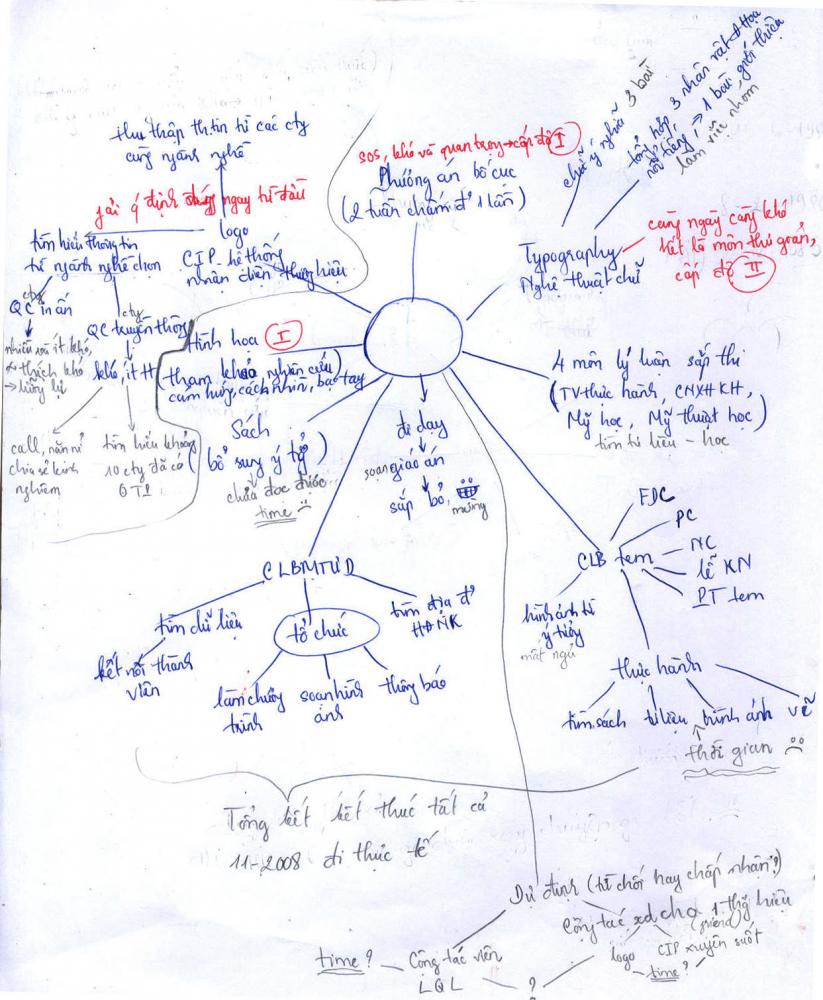 thu thập thtin từ các cty
cùng ngành nghề
gải ý định ngay từ đầu
logo
tìm hiểu thông tin
từ ngành nghề chọn
CIP - hệ thống
nhân diện thương hiệu
cty
QC in ấn
cty
QC truyền thông
nhiều mà ít khó,
thích khó
→ hưỡng lự
khó, ít
call, năn nỉ
chia sẻ kinh
nghiệm
tìm hiểu khoảng
10 cty đã có
QTI
sos, khó và quan trọng → cấp độ I
Phương án bố cục
(2 tuần chấm đ' 1 lần)
chữ ý nghĩa 3 bài
tổng hợp 3 nhân vật Hoạ
nổi tiếng, → 1 bài giới thiệu
làm việc nhóm
Typography
Nghệ thuật chữ
càng ngày càng khó
hết là môn thư giãn,
cấp độ II
Hình hoạ I
(tham khảo nghiên cứu
cảm hứng, cách nhìn, bạo tay
Sách
(bổ sung ý tg)
chưa đọc được...
time
đi dạy
soạn giáo án
sắp bỏ,
mừng
4 môn lý luận sắp thi
(TV thực hành, CNXHKH,
Mỹ học, Mỹ thuật học)
tìm tư liệu - học
CLBMTUD
tìm dữ liệu
kết nối thành
viên
tổ chức
làm chương
trình
soạn hình
ảnh
thông báo
tìm địa đ'
HĐNK
CLB tem
FDC
PC
NC
lễ KN
PT tem
hình ảnh từ
ý tưởng
mất ngủ
thực hành
tìm sách
tư liệu
hình ảnh
vẽ
thời gian
Tổng kết, kết thúc tất cả
11-2008 đi thực tế
Dự định (từ chối hay chấp nhận?)
Công tác xd cho 1 thg hiệu
(friend)
logo
CIP xuyên suốt
time?
time?
Cộng tác viên
LQL
?